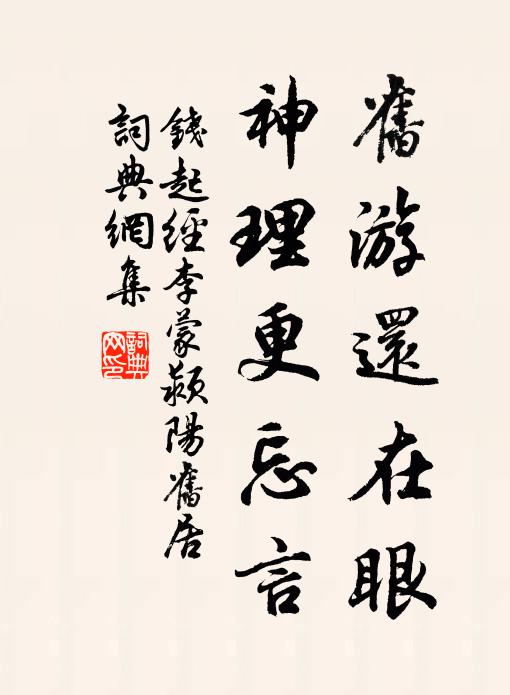 舊游還在眼
神理更忘言
錢起經李蒙潁陽舊居
詞典網集
詞典網印